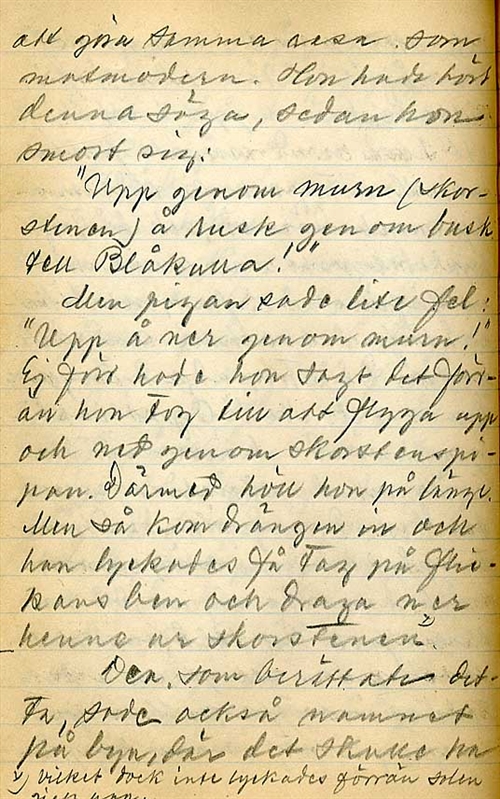 att göra samma resa som
matmodern. Hon hade hört
denna säga, sedan hon
smort sig:
"Upp genom murn (skor-
stenen) å rusk genom busk
tell Blåkulla!"
Men pigan sade lite fel:
"Upp å ner genom murn!"
Ej förr hade hon sagt det förr-
än hon tog till att flyga upp
och ned genom skorstenspi-
pan. Därmed höll hon på länge.
Men så kom drängen in och
han lyckades få tag på flic-
kans ben och draga ner
henne ur skorstenen x).
Den, som berättade det-
ta, sade också namnet
på byn, där det skulle ha
x) vilket dock inte lyckades förrän solen
gick upp.